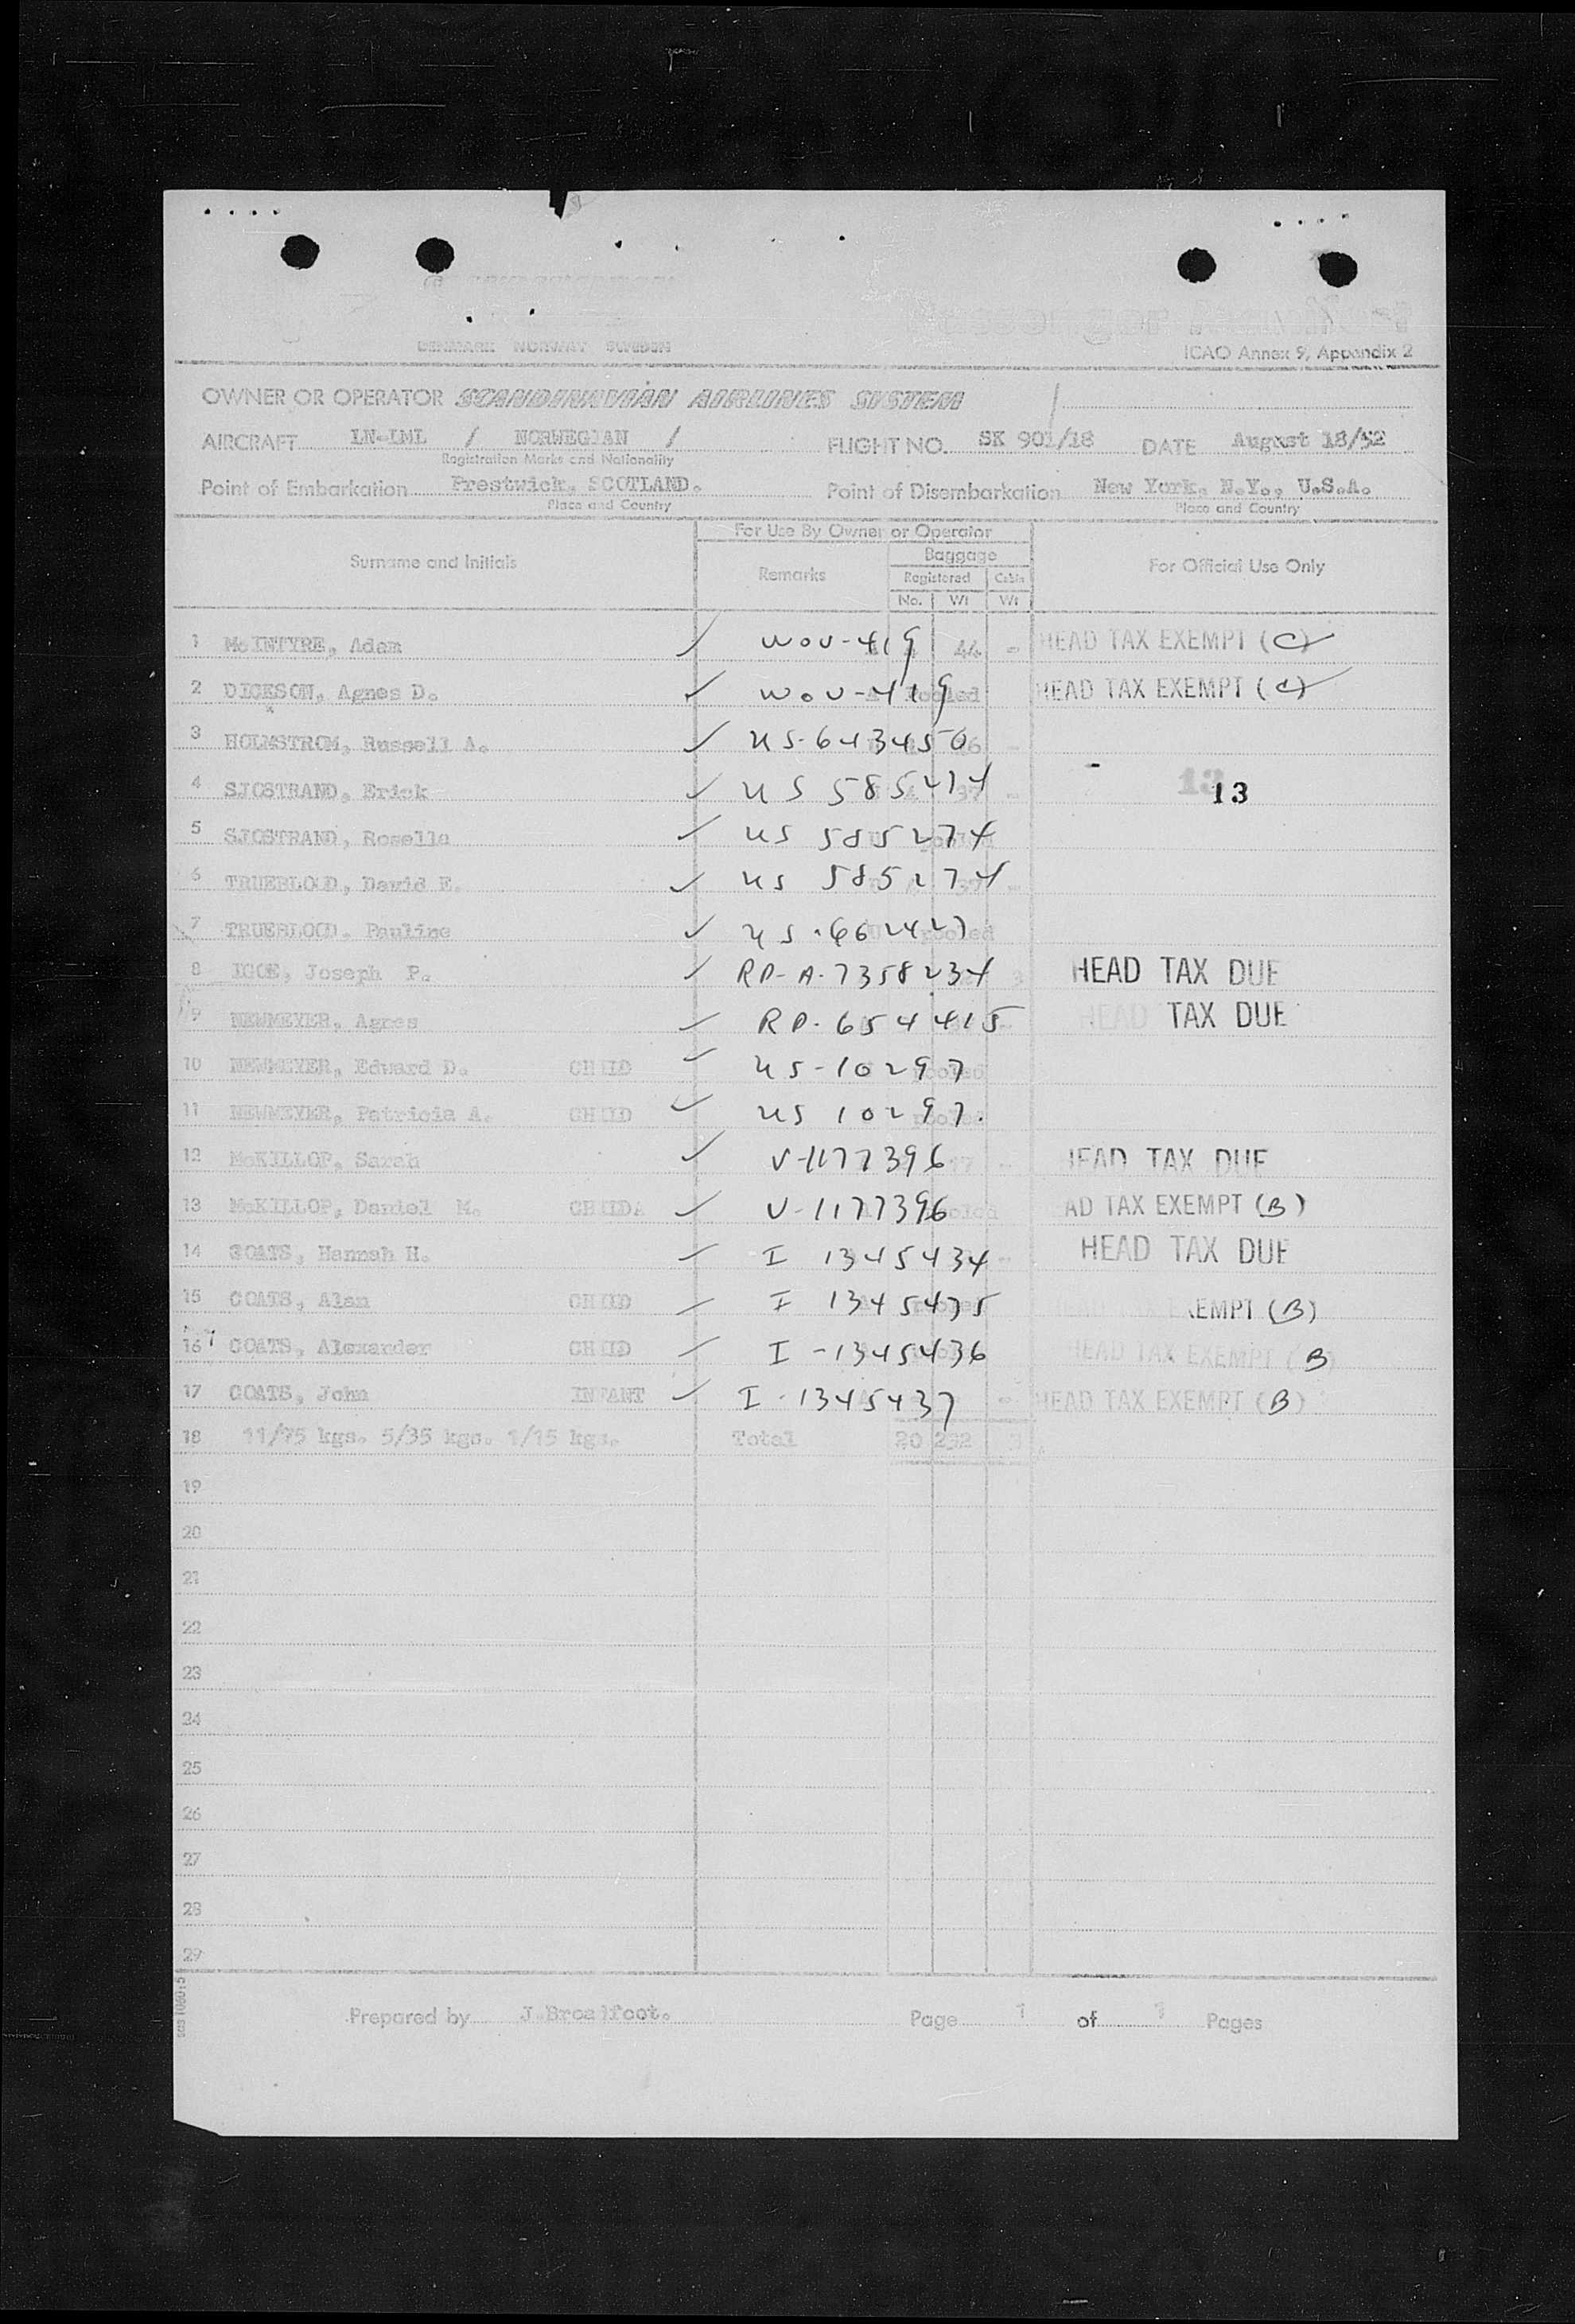 DENMARK NORWAY SWEDEN
ICAO Annex 9, Appendix 2
OWNER OR OPERATOR SCANDINAVIAN AIRLINES SYSTEM
AIRCRAFT LN-LML / NORWEGIAN / FLIGHT NO. SK 901/18 DATE August 18/52
Registration Marks and Nationality
Point of Embarkation Prestwick, SCOTLAND. Point of Disembarkation New York, N.Y., U.S.A.
Place and Country Place and Country
For Use By Owner or Operator
Surname and Initials Remarks Baggage For Official Use Only
Registered Cabin
No. Wt Wt
1 McINTYRE, Adam ✓ WOU-419 44 - HEAD TAX EXEMPT (C)
2 DICKSON, Agnes D. ✓ WOU-419 Pooled HEAD TAX EXEMPT (C)
3 HOLMSTROM, Russell A. ✓ US-643450
4 SJOSTRAND, Erick ✓ US 585274 37 - 13
5 SJOSTRAND, Rosella ✓ US 585274
6 TRUEBLOOD, David E. ✓ US 585274
7 TRUEBLOOD. Pauline ✓ US-662427 pooled
8 Joseph P. ✓ RP-A-7358234 3 HEAD TAX DUE
9 NEWMEYER, Agnes ✓ RP-654415 HEAD TAX DUE
10 NEWMEYER, Edward D. CHILD ✓ US-10297 pooled
11 NEWMEYER, Patricia A. CHILD ✓ US 10297. pooled
12 McKILLOP, Sarah ✓ V-1177396 17 - HEAD TAX DUE
13 McKILLOP, Daniel M. CHILD ✓ V-1177396 AD TAX EXEMPT (B)
14 COATS, Hannah H. ✓ I 1345434 - HEAD TAX DUE
15 COATS, Alan CHILD ✓ I 1345435 HEAD TAX EXEMPT (B)
16 COATS, Alexander CHILD ✓ I-1345436 HEAD TAX EXEMPT (B)
17 COATS, John INFANT ✓ I-1345437 - HEAD TAX EXEMPT (B)
18 11/75 kgs. 5/35 kgs. 1/15 kgs. Total 20 252 3
19
20
21
22
23
24
25
26
27
28
29
Prepared by J.Broadfoot. Page 1 of 1 Pages